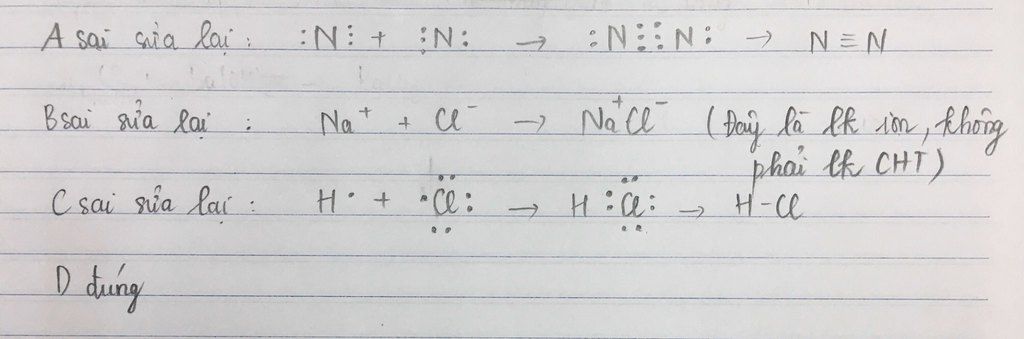 A sai sửa lại : :N⋮ + ⋮N: → :N⋮⋮N: → N≡N
B sai sửa lại : Na⁺ + Cl⁻ → Na⁺Cl⁻ (Đây là lk ion, không
phải lk CHT)
C sai sửa lại : H· + ·Cl: → H :Cl: → H-Cl
D đúng